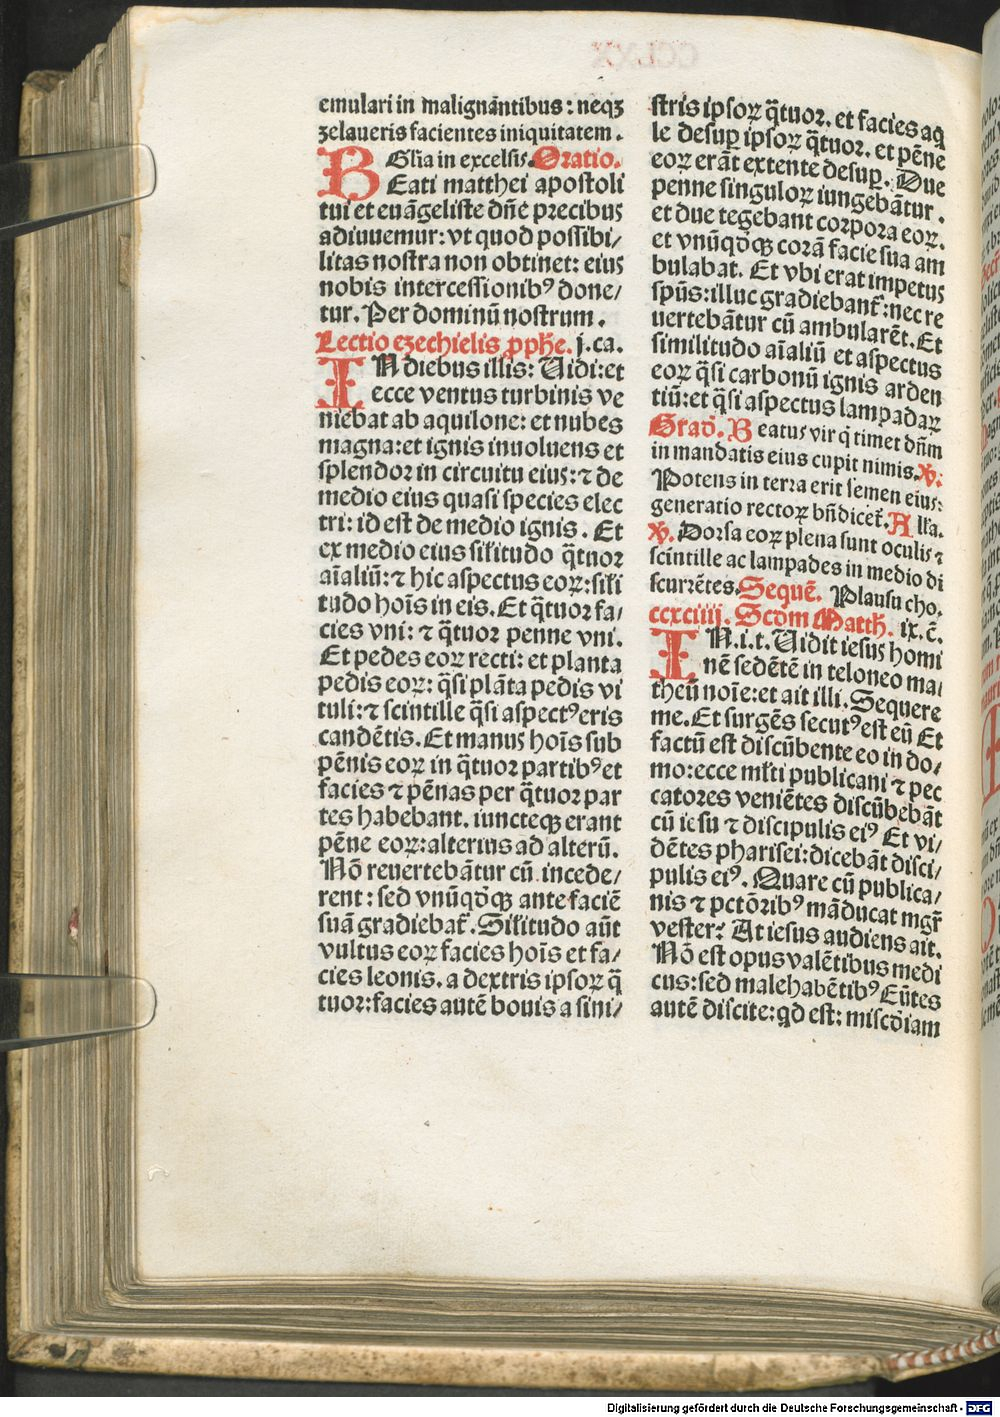 emulari in malignãntibus: neqꝫ
zelaueris facientes iniquitatem.
Gl̃ia in excelsis. Oratio.
BEati matthei apostoli
tui et euãgeliste dñe precibus
adiuuemur: vt quod possibi/
litas nostra non obtinet: eius
nobis intercessionibꝰ done/
tur. Per dominũ nostrum.
Lectio ezechielis ꝓph̃e. j.ca.
IN diebus illis: Uidi: et
ecce ventus turbinis ve
niebat ab aquilone: et nubes
magna: et ignis inuoluens et
splendor in circuitu eius: ⁊ de
medio eius quasi species elec
tri: id est de medio ignis. Et
ex medio eius sil̃itudo q̃tuor
aĩaliũ: ⁊ hic aspectus eoꝝ: sil̃i
tudo hoĩs in eis. Et q̃tuor fa/
cies vni: ⁊ q̃tuor penne vni.
Et pedes eoꝝ recti: et planta
pedis eoꝝ: q̃si plãta pedis vi
tuli: ⁊ scintille q̃si aspectꝰ eris
candẽtis. Et manus hoĩs sub
pẽnis eoꝝ in q̃tuor partibꝰ et
facies ⁊ pẽnas per q̃tuor par
tes habebant. iuncteqꝫ erant
pẽne eoꝝ: alterius ad alterũ.
Nõ reuertebãtur cũ incede/
rent: sed vnũqd̃qꝫ ante faciẽ
suã gradiebat̃. Sil̃itudo aũt
vultus eoꝝ facies hoĩs et fa/
cies leonis. a dextris ipsoꝝ q̃
tuor: facies autẽ bouis a sini/
stris ipsoꝝ q̃tuor. et facies aq
le desuꝑ ipsoꝝ q̃tuor. et pẽne
eoꝝ erãt extente desuꝑ. Due
penne singuloꝝ iungebãtur.
et due tegebant corpora eoꝝ.
et vnũqd̃qꝫ corã facie sua am
bulabat. Et vbi erat impetus
spũs: illuc gradiebant̃: nec re
uertebãtur cũ ambularẽt. Et
similitudo aĩaliũ et aspectus
eoꝝ q̃si carbonũ ignis arden
tiũ: et q̃si aspectus lampadaꝝ
Grad̃. Beatus vir q̃ timet dñm
in mandatis eius cupit nimis. ℣.
Potens in terra erit semen eius:
generatio rectoꝝ bñdicet̃. All̃a.
℣. Dorsa eoꝝ plena sunt oculis ⁊
scintille ac lampades in medio di
scurrẽtes. Sequẽ. Plausu cho.
ccxciiij. Scd̃m Matth̃. ix.c̃.
IN.i.t. Uidit iesus homi
nẽ sedẽtẽ in teloneo ma/
theũ noĩe: et ait illi. Sequere
me. Et surgẽs secutꝰ est eũ Et
factũ est discũbente eo in do/
mo: ecce ml̃ti publicani ⁊ pec
catores veniẽtes discũbebãt
cũ iesu ⁊ discipulis eiꝰ Et vi/
dẽtes pharisei: dicebãt disci/
pulis eiꝰ. Quare cũ publica/
nis ⁊ pctõribꝰ mãducat mgr̃
vester? At iesus audiens ait.
Nõ est opus valẽtibus medi
cus: sed male habẽtibꝰ Eũtes
autẽ discite: qd est: miscd̃iam
Digitalisierung gefördert durch die Deutsche Forschungsgemeinschaft - DFG